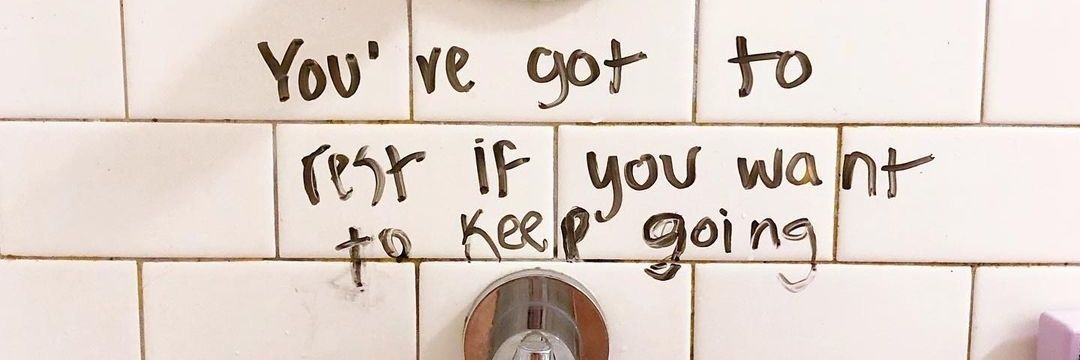 You've got to
rest if you want
to keep going